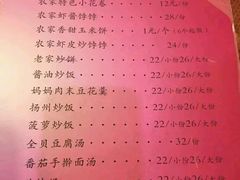 农家特色小花卷 · · · · · 12元/份
农家虾酱饽饽 · · · · · · 28/份
农家香甜玉米饼 · · · 1元/个(6个起做)
农家虾皮炒饽饽 · · · · · 24/份
老家炒饼 · · · · · 22/小份26/大份
酱油炒饭 · · · · · 22/小份26/大份
妈妈肉末豆花羹 · · 22/小份26/大份
扬州炒饭 · · · · · 22/小份26/大份
菠萝炒饭 · · · · · 22/小份26/大份
全贝豆腐汤 · · · · · · · 32/份
番茄手擀面汤 · · · 22/小份26/大份